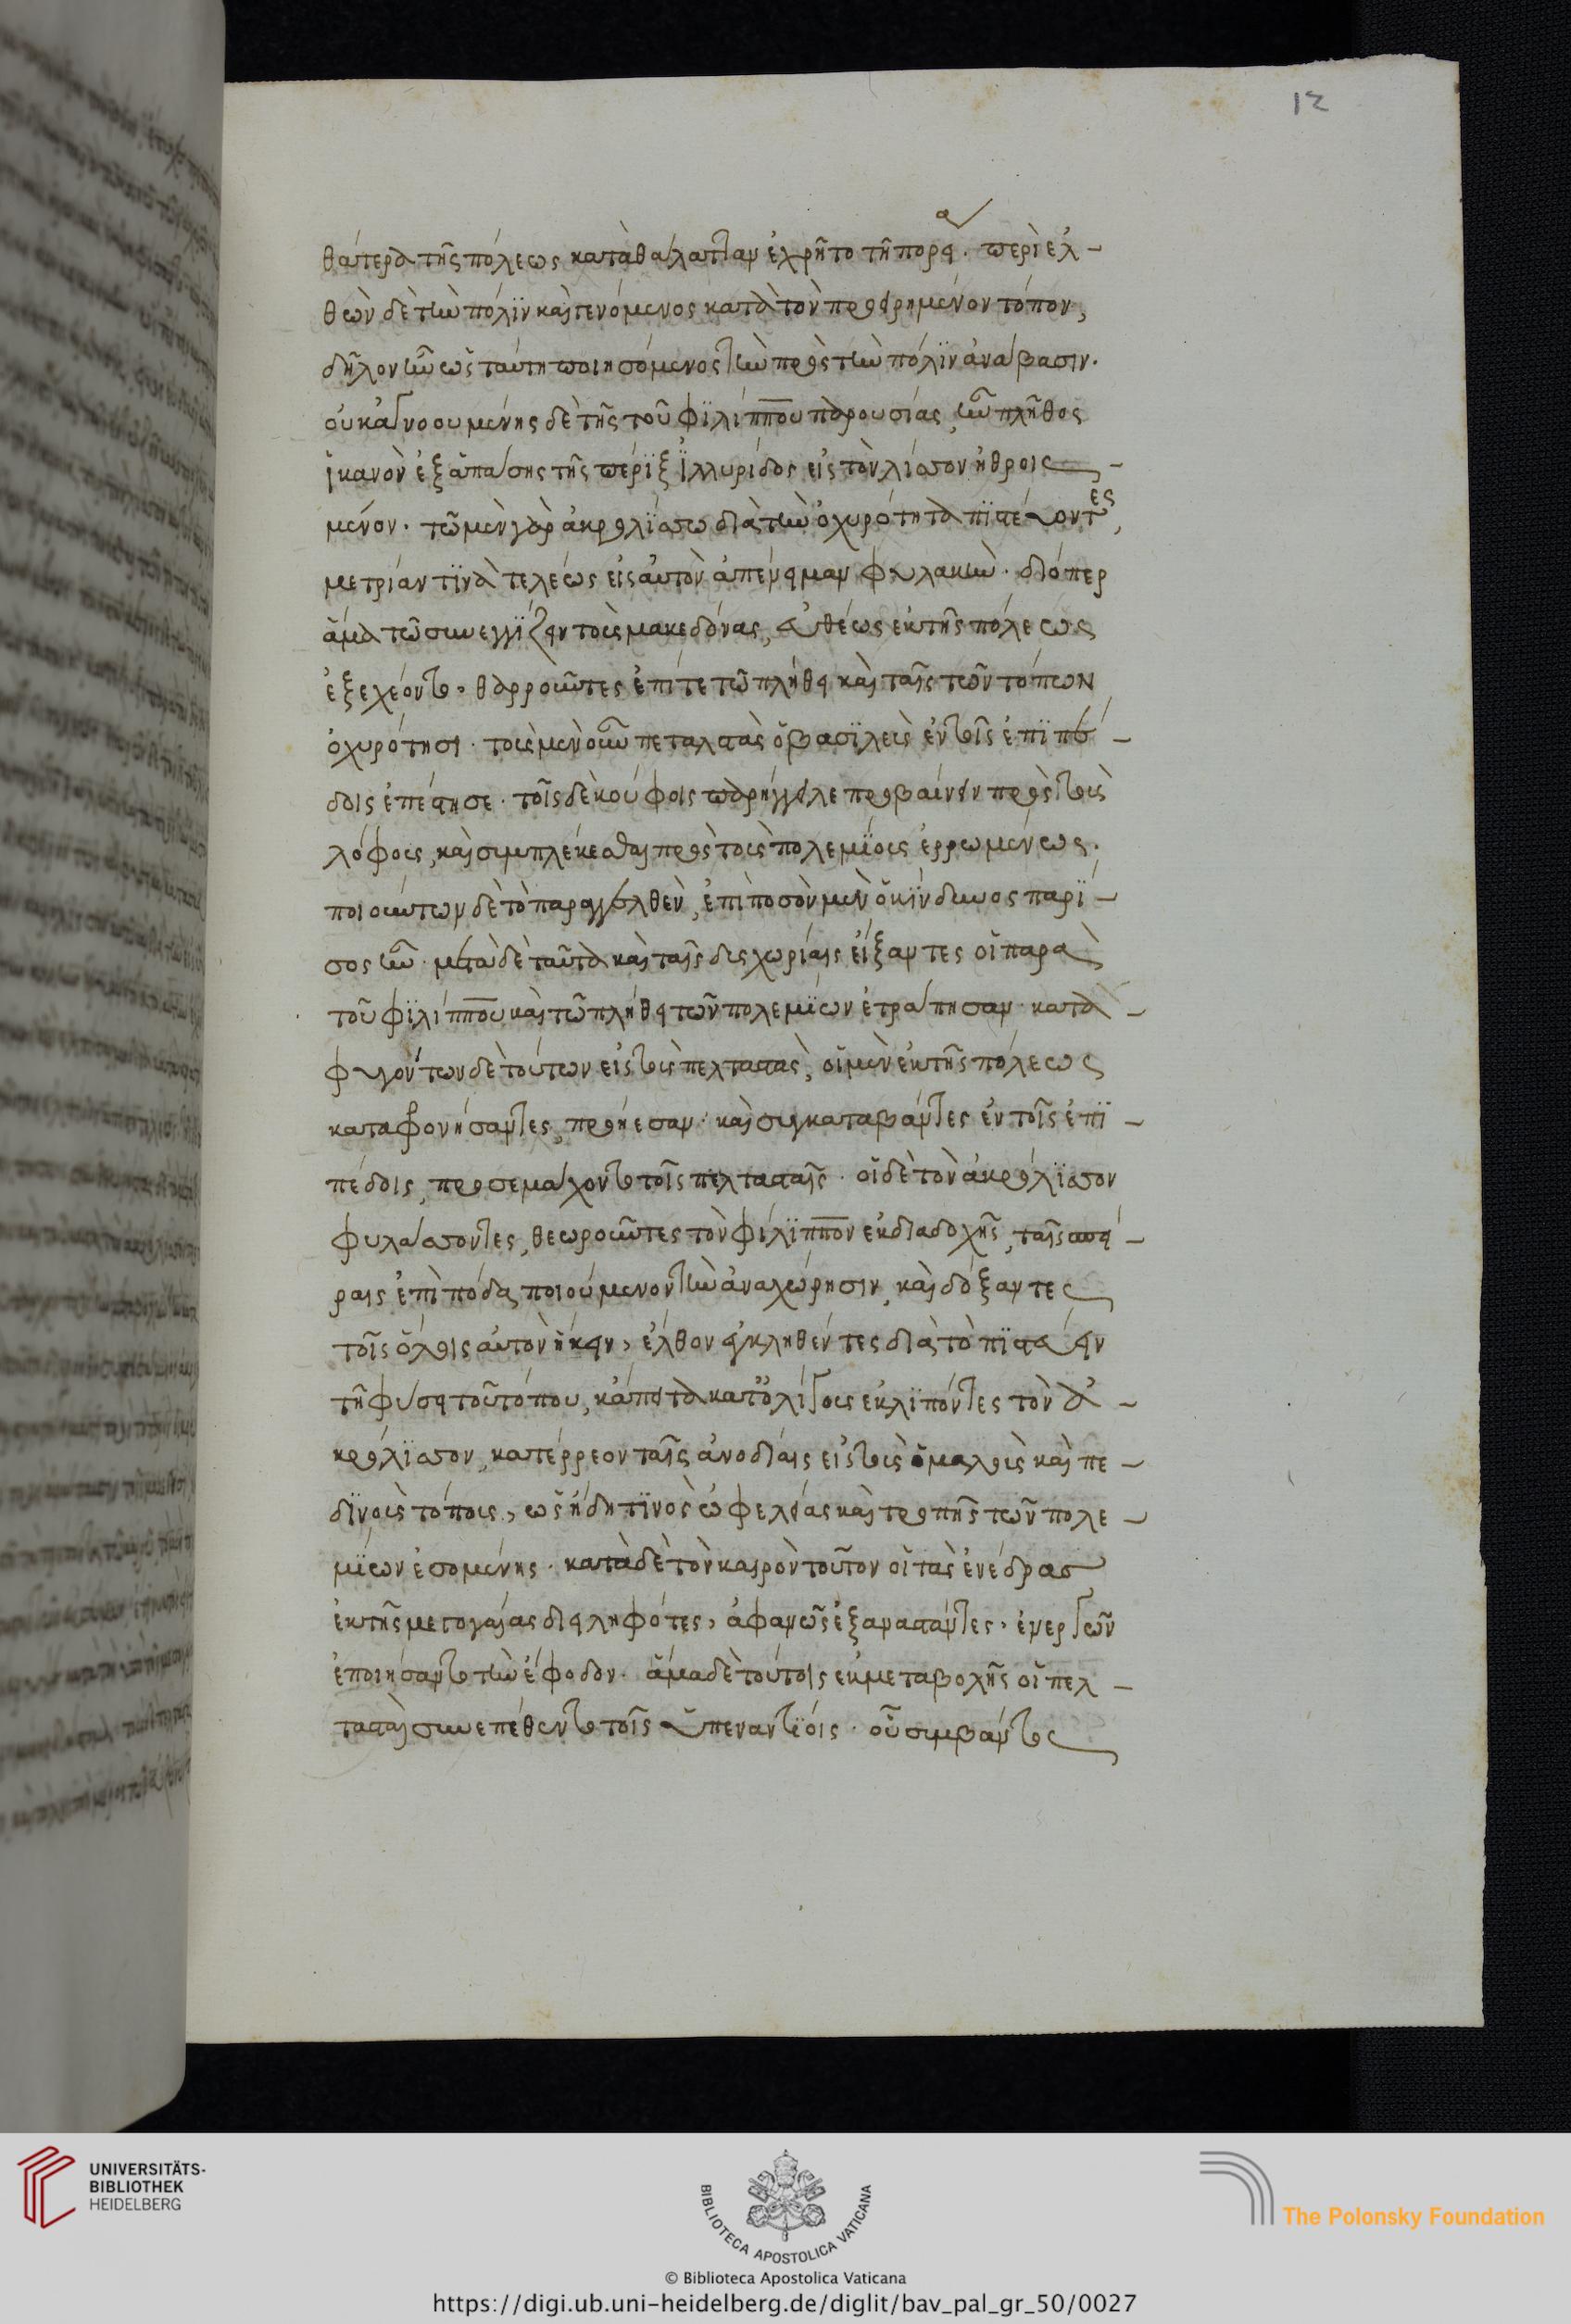 θάτερα τῆς πόλεως κατὰ θάλατταν ἐχρῆτο τῆ πορεία. περὶ ελ-
θὼν δὲ τὴν πόλϊν καὶ γενόμενος κατὰ τὸν προειρημένον τόπον,
δῆλον ἦν ὡς ταύτη ποιησόμενος τὴν πρὸς τὴν πόλϊν ἀνάβασιν.
οὐκ ἀγνοουμένης δὲ τῆς τοῦ φϊλίππου παρουσίας, ἦν πλῆθος
ἱκανὸν ἐξ ἁπάσης τῆς πέρϊξ ἰλλυρίδος εἰς τὸν λίσσον ἠθροισ-
μένον. τῶ μὲν γὰρ ἀκρολϊσσω διὰ τὴν ὀχυρότητα πϊστεύοντες,
μετρίαν τϊνὰ τελέως εἰς αὐτὸν ἀπένειμαν φυλακὴν. διόπερ
ἅμα τῶ συνεγγϊζειν τοὺς μακεδόνας, εὐθέως ἐκ τῆς πόλεως
ἐξεχέοντο, θαρροῦντες ἐπί τε τῶ πλήθει καὶ ταῖς τῶν τόπων
ὀχυρότησι. τοὺς μὲν οὖν πελταστὰς ὁ βασϊλεὺς ἐν τοῖς ἐπϊπέ-
δοις ἐπέστησε. τοῖς δὲ κούφοις παρήγγειλε προβαίνειν πρὸς τοὺς
λόφους, καὶ συμπλέκεσθαι πρὸς τοὺς πολεμϊους ἐρρωμένως.
ποιούντων δὲ τὸ παραγγελθὲν, ἐπὶ ποσὸν μὲν ὁ κίνδυνος παρϊ-
σος ἦν. μετὰ δὲ ταῦτα καὶ ταῖς δυσχωρίαις εἴξαντες οἱ παρὰ
τοῦ φϊλίππου καὶ τῶ πλήθει τῶν πολεμϊων ἐτράπησαν. κατα-
φυγόντων δὲ τούτων εἰς τοὺς πελταστὰς, οἱ μὲν ἐκ τῆς πόλεως
καταφρονήσαντες, προήεσαν. καὶ συγκαταβάντες ἐν τοῖς ἐπϊ-
πέδοις, προσεμάχοντο τοῖς πελτασταῖς. οἱ δὲ τὸν ἀκρόλϊσσον
φυλάσσοντες, θεωροῦντες τὸν φίλϊππον ἐκ διαδοχῆς, ταῖς σπεί-
ραις ἐπὶ πόδα ποιούμενον τὴν ἀναχώρησιν, καὶ δόξαντες
τοῖς ὅλοις αὐτὸν ἥκειν, ἔλθον ἐκκληθέντες διὰ τὸ πϊστεύειν
τῆ φύσει τοῦ τόπου, κἄπειτα κατ' ὀλίγους ἐκλϊπόντες τὸν ἀ-
κρόλϊσσον, κατέρρεον ταῖς ἀνοδίαις εἰς τοὺς ὁμαλοὺς καὶ πε-
δϊνοὺς τόπους, ὡς ἤδη τϊνὸς ὠφελείας καὶ τροπῆς τῶν πολε-
μϊων ἐσομένης. κατὰ δὲ τὸν καιρὸν τοῦτον οἱ τὰς ἐνέδρας
ἐκ τῆς μεσογαίας διειληφότες, ἀφανῶς ἐξαναστάντες, ἐνεργῶν
ἐποιήσαντο τὴν ἔφοδον. ἅμα δὲ τούτοις ἐκ μεταβολῆς οἱ πελ-
τασταὶ συνεπέθεντο τοῖς ὑπεναντϊοις. οὗ συμβάντος
12
UNIVERSITÄTS-
BIBLIOTHEK
HEIDELBERG
BIBLIOTECA APOSTOLICA VATICANA
The Polonsky Foundation
© Biblioteca Apostolica Vaticana
https://digi.ub.uni-heidelberg.de/diglit/bav_pal_gr_50/0027